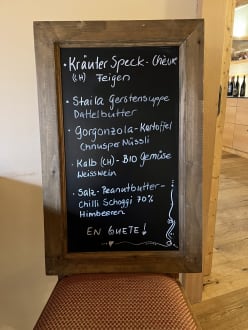 • Kräuter Speck - Chèvre
(CH) Feigen
• Staila Gerstensuppe
Dattelbutter
• Gorgonzola - Kartoffel
Chnusper Müssli
• Kalb (CH) - BIO Gemüse
Weisswein
• Salz - Peanutbutter -
Chilli Schoggi 70%
Himbeeren
EN GUETE!